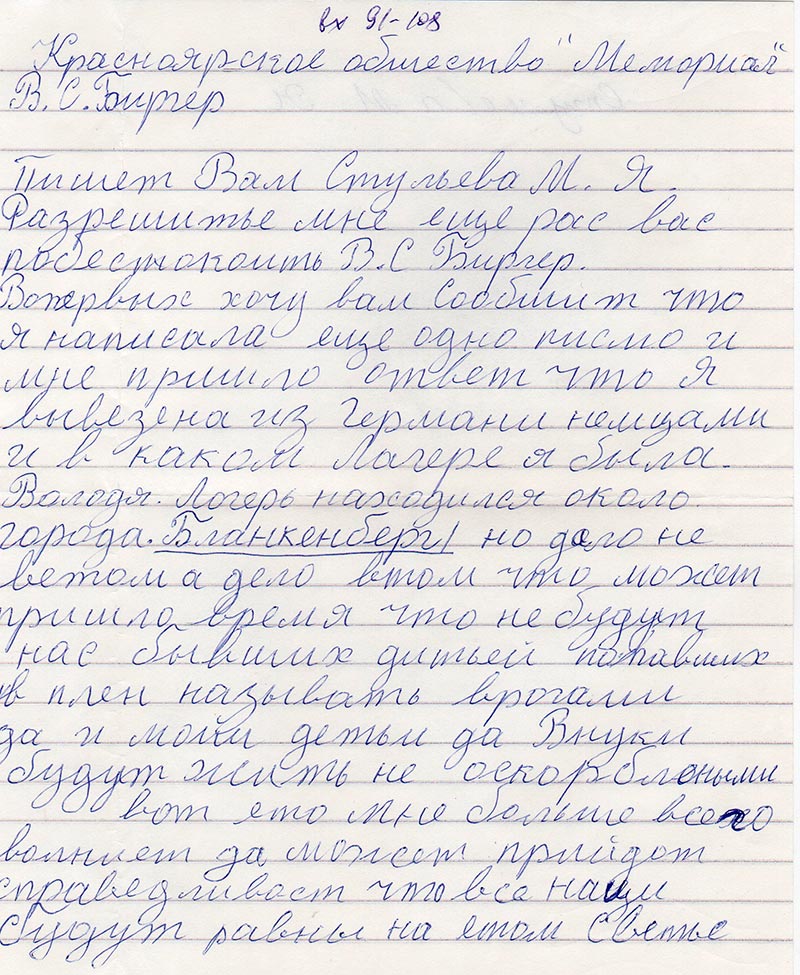 вх 91-108
Красноярское обшество "Мемориал"
В.С.Биргер
Пишет Вам Стульева М. Я.
Разрешитье мне еще рас вас
побестокоить В.С Биргер.
Вопервых хочу вам Сообшит что
я написала еще одно писмо и
мне пришло ответ что я
вывезена из Германи немцами
и в каком Лагере я была.
Володя. Логерь находился около
города. Бланкенберг, но дело не
ветом а дело втом что может
пришло время что не будут
нас бывших дитьей попавших
в плен называть врогами
да и мойи детьи да Внуки
будут жить не оскорблеными
вот ето мне больше всего
волнует да может прийдот
справедливост что все наци
будут равны на етом Светье